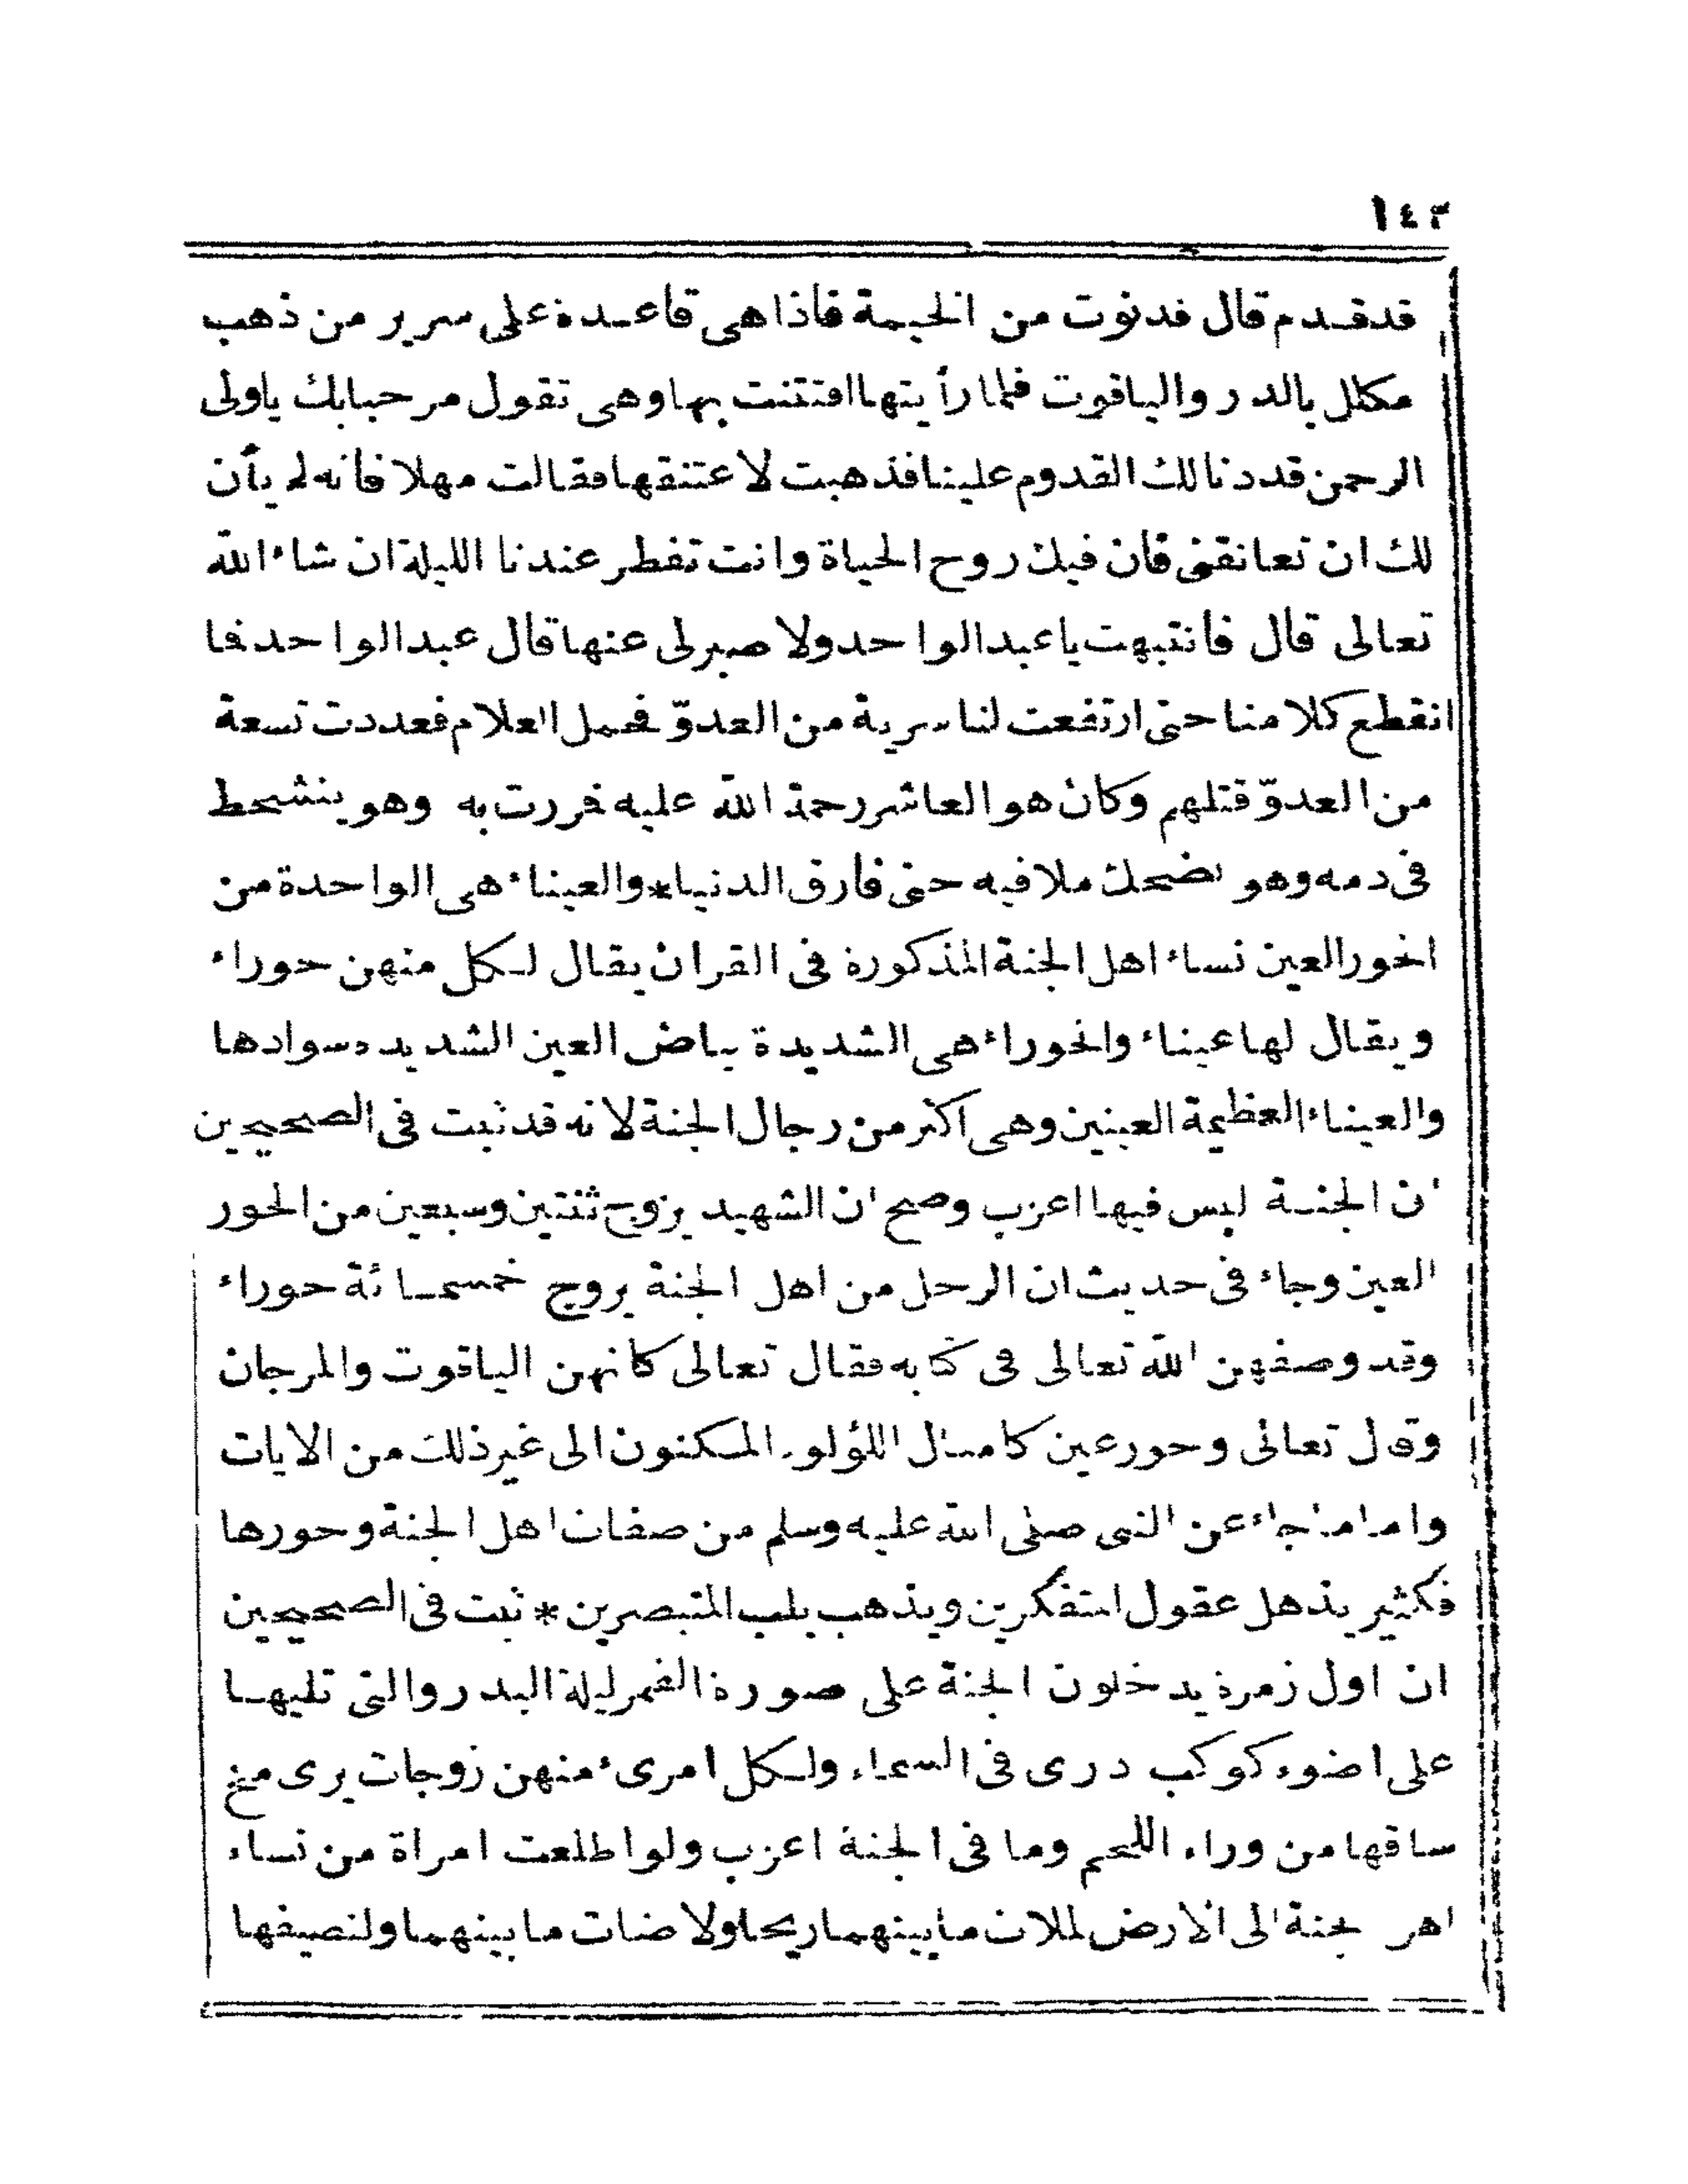 ١٤٣
قد قدم قال فدنوت من الخيمة فاذا هى قاعدة على سرير من ذهب
مكلل بالدر والياقوت فلما رأيتها افتتنت بها وهى تقول مرحبا بك ياولى
الرحمن قد دنا لك القدوم علينا فذهبت لاعتنقها فقالت مهلا فانه لم يأن
لك ان تعانقنى فان فيك روح الحياة وانت تفطر عندنا الليلة ان شاء الله
تعالى قال فانتبهت ياعبدالواحد ولا صبر لى عنها قال عبدالواحد فما
انقطع كلامنا حتى ارتفعت لنا سرية من العدوّ فحمل الغلام فعددت تسعة
من العدوّ قتلهم وكان هو العاشر رحمة الله عليه فمررت به وهو يتشحط
فى دمه وهو يضحك ملا فيه حتى فارق الدنيا * والعيناء هى الواحدة من
الحور العين نساء اهل الجنة المذكورة فى القران يقال لكل منهن حوراء
ويقال لها عيناء والحوراء هى الشديدة بياض العين الشديدة سوادها
والعيناء العظيمة العينين وهى اكثر من رجال الجنة لانه قد ثبت فى الصحيحين
ان الجنة ليس فيها اعزب وصح ان الشهيد يزوج ثنتين وسبعين من الحور
العين وجاء فى حديث ان الرجل من اهل الجنة يزوج خمسمائة حوراء
وقد وصفهن الله تعالى فى كتابه فقال تعالى كانهن الياقوت والمرجان
وقال تعالى وحور عين كامثال اللؤلوء المكنون الى غير ذلك من الايات
واما ما جاء عن النبى صلى الله عليه وسلم من صفات اهل الجنة وحورها
فكثير يذهل عقول المتفكرين ويذهب بلب المتبصرين * ثبت فى الصحيحين
ان اول زمرة يدخلون الجنة على صورة القمر ليلة البدر والتى تليها
على اضوء كوكب درى فى السماء ولكل امرىء منهن زوجات يرى مخ
ساقها من وراء اللحم وما فى الجنة اعزب ولو اطلعت امراة من نساء
اهل الجنة الى الارض لملات مابينهما ريحا ولاضات مابينهما ولنصيفها